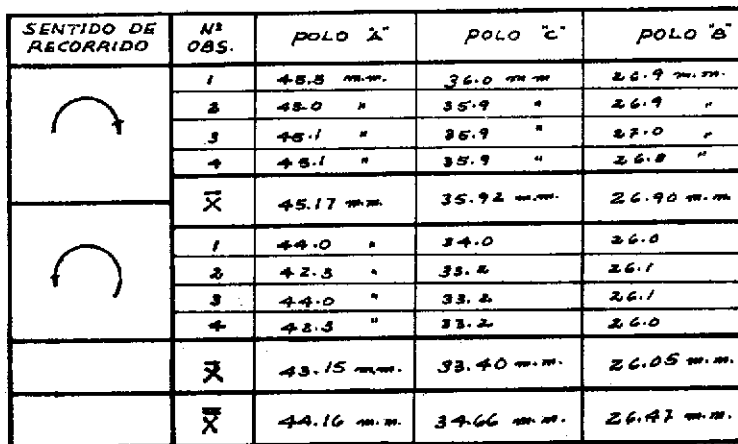 SENTIDO DE RECORRIDO Nº OBS. POLO "A" POLO "C" POLO "B"
1 45.5 m.m. 36.0 m m 26.9 m.m.
2 45.0 " 35.9 " 26.9 "
3 45.1 " 35.9 " 27.0 "
4 45.1 " 35.9 " 26.8 "
X̄ 45.17 m.m. 35.92 m.m. 26.90 m.m
1 44.0 " 34.0 26.0
2 42.3 " 33.2 26.1
3 44.0 " 33.2 26.1
4 42.3 " 33.2 26.0
X̄ 43.15 m.m. 33.40 m.m. 26.05 m.m.
X̿ 44.16 m.m. 34.66 m.m. 26.47 m.m.